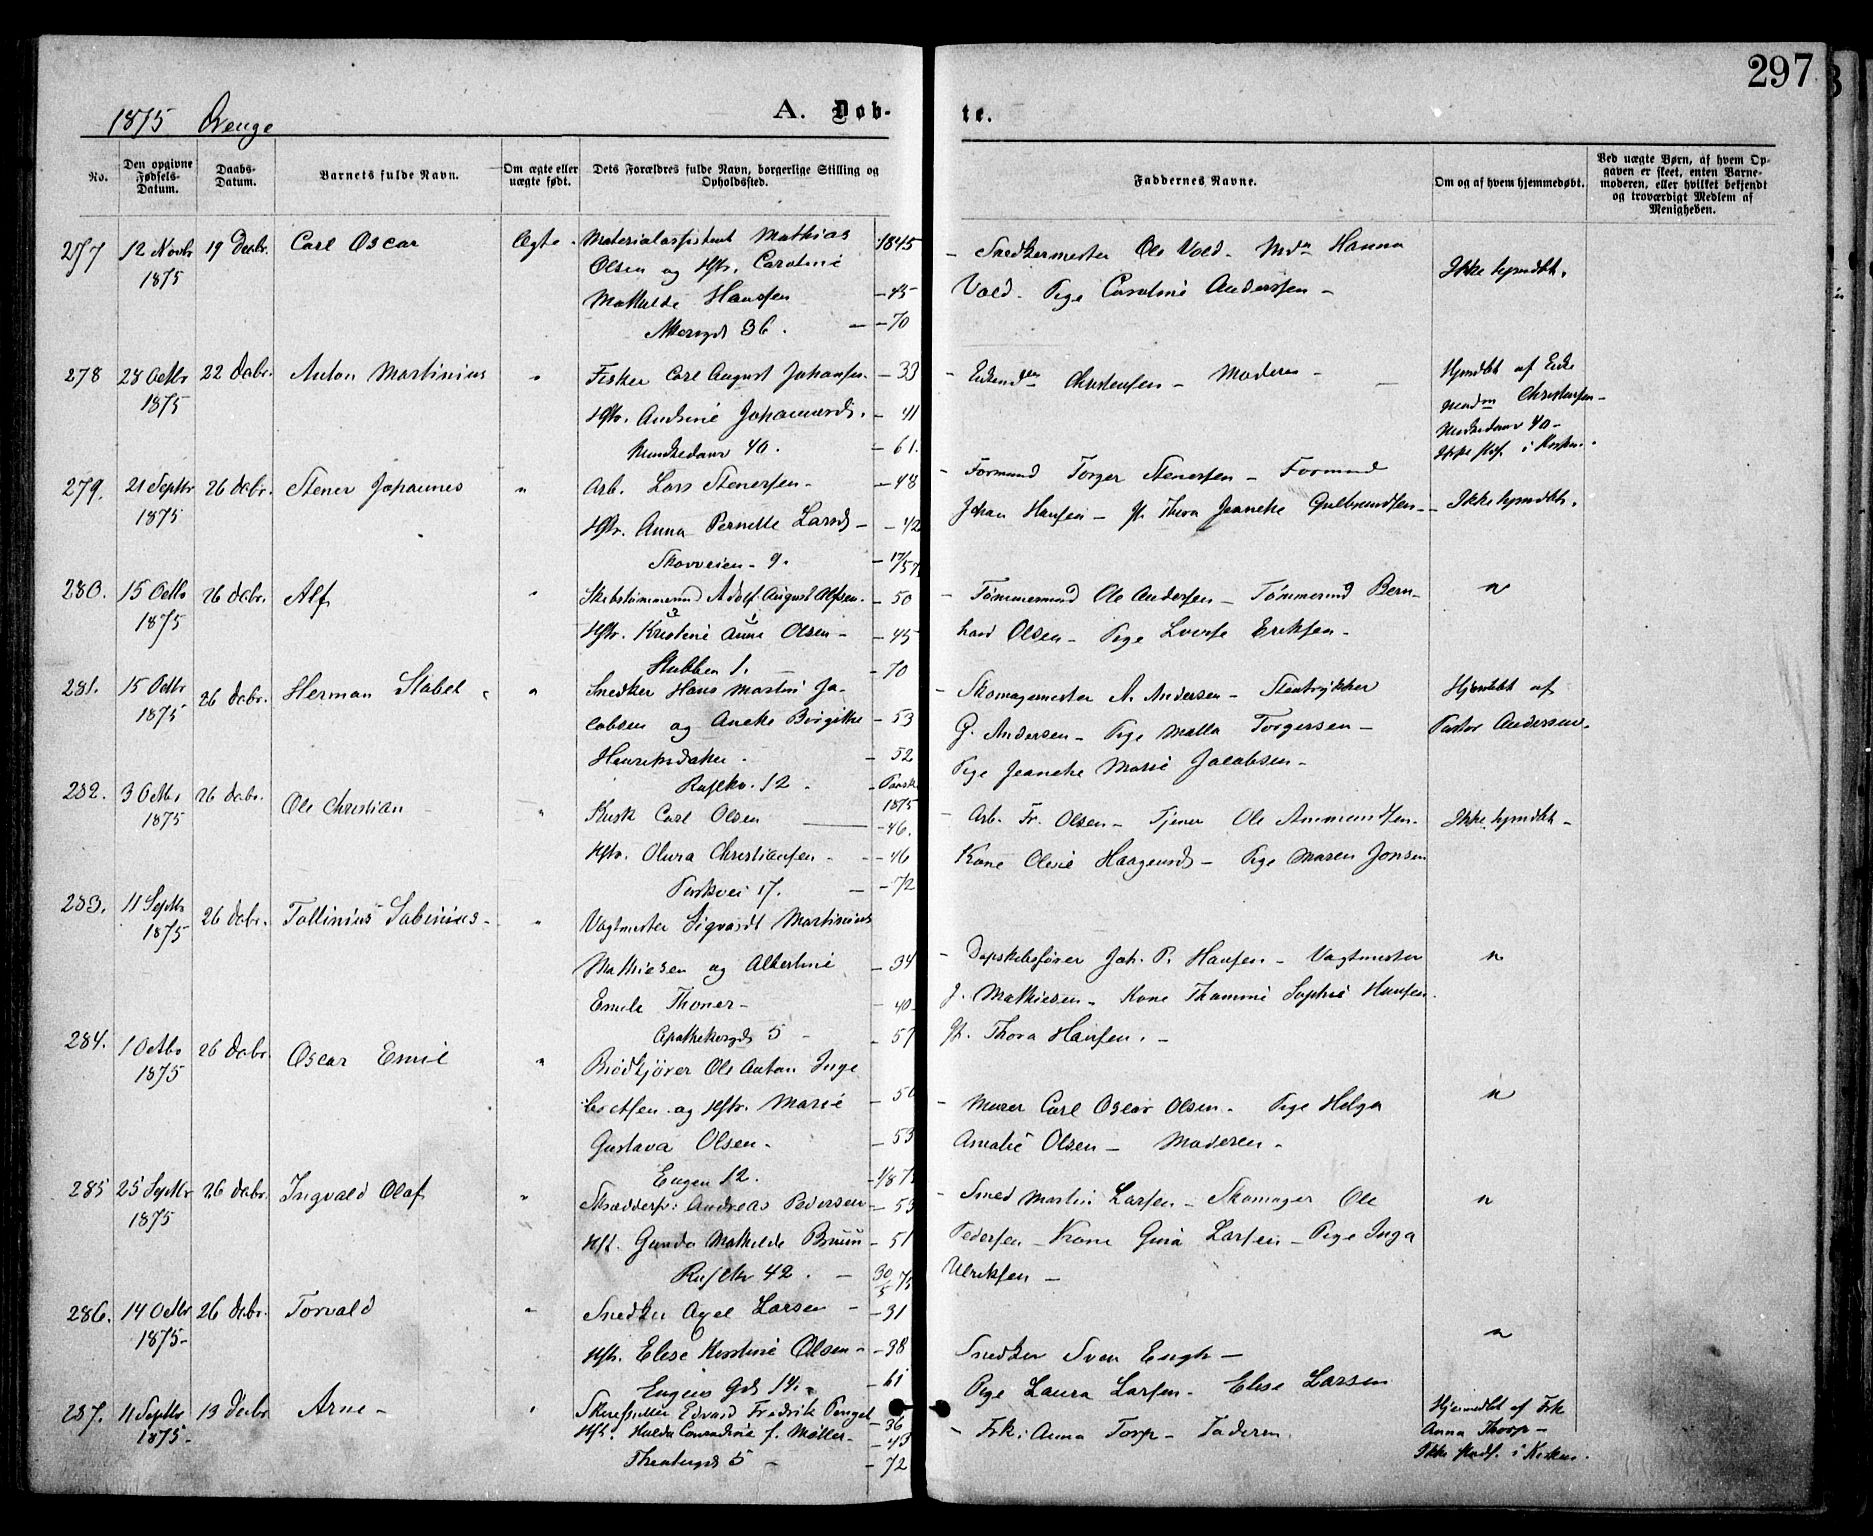 297
1875 Drenge
A. Døb-
te.
No.
Den opgivne Fødsels-Datum.
Daabs-Datum.
Barnets fulde Navn.
Om ægte eller uægte født.
Dets Forældres fulde Navn, borgerlige Stilling og Opholdssted.
Faddernes Navne.
Om og af hvem hjemmedøbt.
Ved uægte Børn, af hvem Op-
gaven er skeet, enten Barne-
moderen, eller hvilket bekjendt
og troværdigt Medlem af
Menigheden.
277 12 Novbr 1875 19 Decbr. Carl Oscar Ægte.
Materialassistent Mathias 1845
Olsen og Hstr. Caroline
Mathilde Hansen - 45
Akersgd 36. - 70
- Snedkermester Ole Vold - Mdm Hanna
Vold - Pige Caroline Andersen -
Ikke hjmdbt.
278 28 Octbr 1875 22 Decbr. Anton Martinius "
Fisker Carl August Johansen - 33
Hstr. Andrine Johannesd. - 41
Munkedamv 40. - 61.
- Enkemdm Christensen - Moderen -
Hjmdbt af Enke
madm Christensen -
Munkedamv 40 -
Ikke stdf. i Kirken.
279. 21 Septbr 1875 26 Decbr. Stener Johannes "
Arb. Lars Stenersen - 48
Hstr. Anna Pernille Larsd - 42
Skovveien 9. - 17/57
- Formand Torger Stenersen - Formand
Johan Hansen - J. Thora Jeanette Gulbrandsen -
Ikke hjmdbt.
280. 15 Octbr 1875 26 Decbr. Alf "
Skibstømmermd Adolf August Alfsen. - 50
Hstr. Kristine Anne Olsen - 45
Stubben 1. - 70
- Tømmermand Ole Andersen - Tømmermd Bern-
hard Olsen - Pige Lovise Eriksen -
"
281. 15 Octbr 1875 26 Decbr. Herman Stabel "
Snedker Hans Martin Ja-
cobsen og Aneke Birgitte - 53
Henriksdatter. - 52
Rusløkv. 12. - 1875
- Skomagermester A. Andersen - Stentrykker
G. Andersen - Pige Malla Torgersen -
Pige Jeanette Marie Jacobsen -
Hjemdbt af
Pastor Andersen.
282. 3 Octbr 1875 26 Decbr. Ole Christian "
Kusk Carl Olsen - 46.
Hstr. Olura Christiansen - 46
Parkvei 17. - 72
- Arb. Fr. Olsen - Tjener Ole Ammundsen -
Kone Olevie Haagensd - Pige Maren Jonsen
Ikke hjmdbt -
283. 11 Septbr 1875 26 Decbr. Tollinius Sabinius - "
Vagtmester Sigvardt Martinius
Mathiesen og Albertine - 34
Emile Thoner - 40
Apothekergd 5 - 57
- Dapskibsfører Joh. P. Hansen - Vagtmester
J. Mathiesen - Kone Thamine Sophie Hansen.
Jf. Thora Hansen. -
"
284. 1 Octbr 1875 26 Decbr. Oscar Emil "
Brødkjører Ole Anton Inge
bretsen og Hstr. Marie - 50
Gustava Olsen - 53
Engen 12.
- Murer Carl Oscar Olsen - Pige Helga
Amalie Olsen - Moderen -
"
285 25 Septbr 1875 26 Decbr. Ingvald Olaf "
Skrædders: Andreas Pedersen - 53
Hst. Gunda Mathilde Bruun - 51
Rusløkv 42. - 30/5 75
- Smed Martin Larsen - Skomager Ole
Pedersen - Kone Gina Larsen - Pige Inga
Ulriksen -
"
286. 14 Octbr 1875 - 26 Decbr. Torvald "
Snedker Axel Larsen - 31
Hstr. Elise Kirstine Olsen - 38
Engens Gd 14. - 61
Snedker Sven Engh -
Pige Laura Larsen - Elise Larsen
"
287. 11 Septbr 1875 - 13 Decbr Arne - "
Edvard Fredrik Pengel - 36
Hst. Hulda Conradine f. Møller - 43
Theatergd 5 - 72
- Frk: Anna Torp - Faderen.
Hjemdbt af Frk
Anna Thorp -
Ikke stadf. i Kirken.